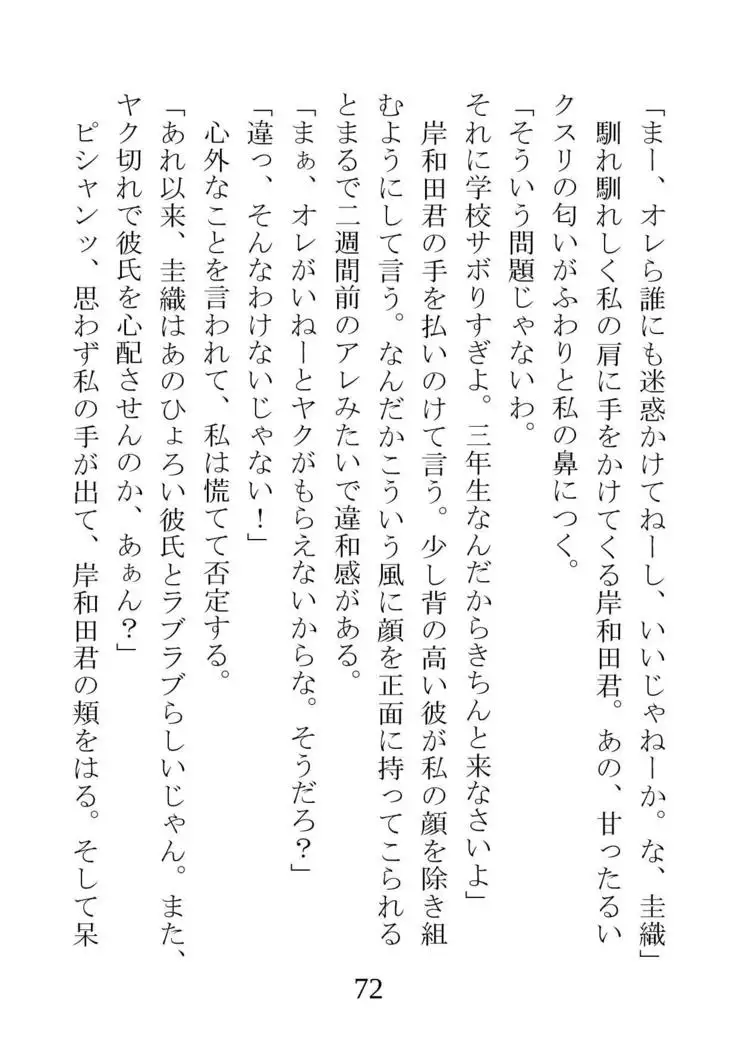 「まー、オレら誰にも迷惑かけてねーし、いいじゃねーか。な、圭織」
馴れ馴れしく私の肩に手をかけてくる岸和田君。あの、甘ったるい
クスリの匂いがふわりと私の鼻につく。
「そういう問題じゃないわ。
それに学校サボりすぎよ。三年生なんだからきちんと来なさいよ」
岸和田君の手を払いのけて言う。少し背の高い彼が私の顔を除き組
むようにして言う。なんだかこういう風に顔を正面に持ってこられる
とまるで二週間前のアレみたいで違和感がある。
「まぁ、オレがいねーとヤクがもらえないからな。そうだろ？」
「違っ、そんなわけないじゃない！」
心外なことを言われて、私は慌てて否定する。
「あれ以来、圭織はあのひょろい彼氏とラブラブらしいじゃん。また、
ヤク切れで彼氏を心配させんのか、あぁん？」
ピシャンッ、思わず私の手が出て、岸和田君の頬をはる。そして呆
72